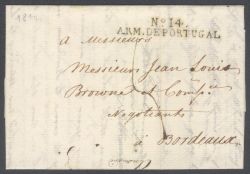 181
Nº 14.
ARM. DE PORTUGAL
a Messieurs
Messieurs Jean Louis
Browne et Comp.ie
Negotiants
à Bordeaux